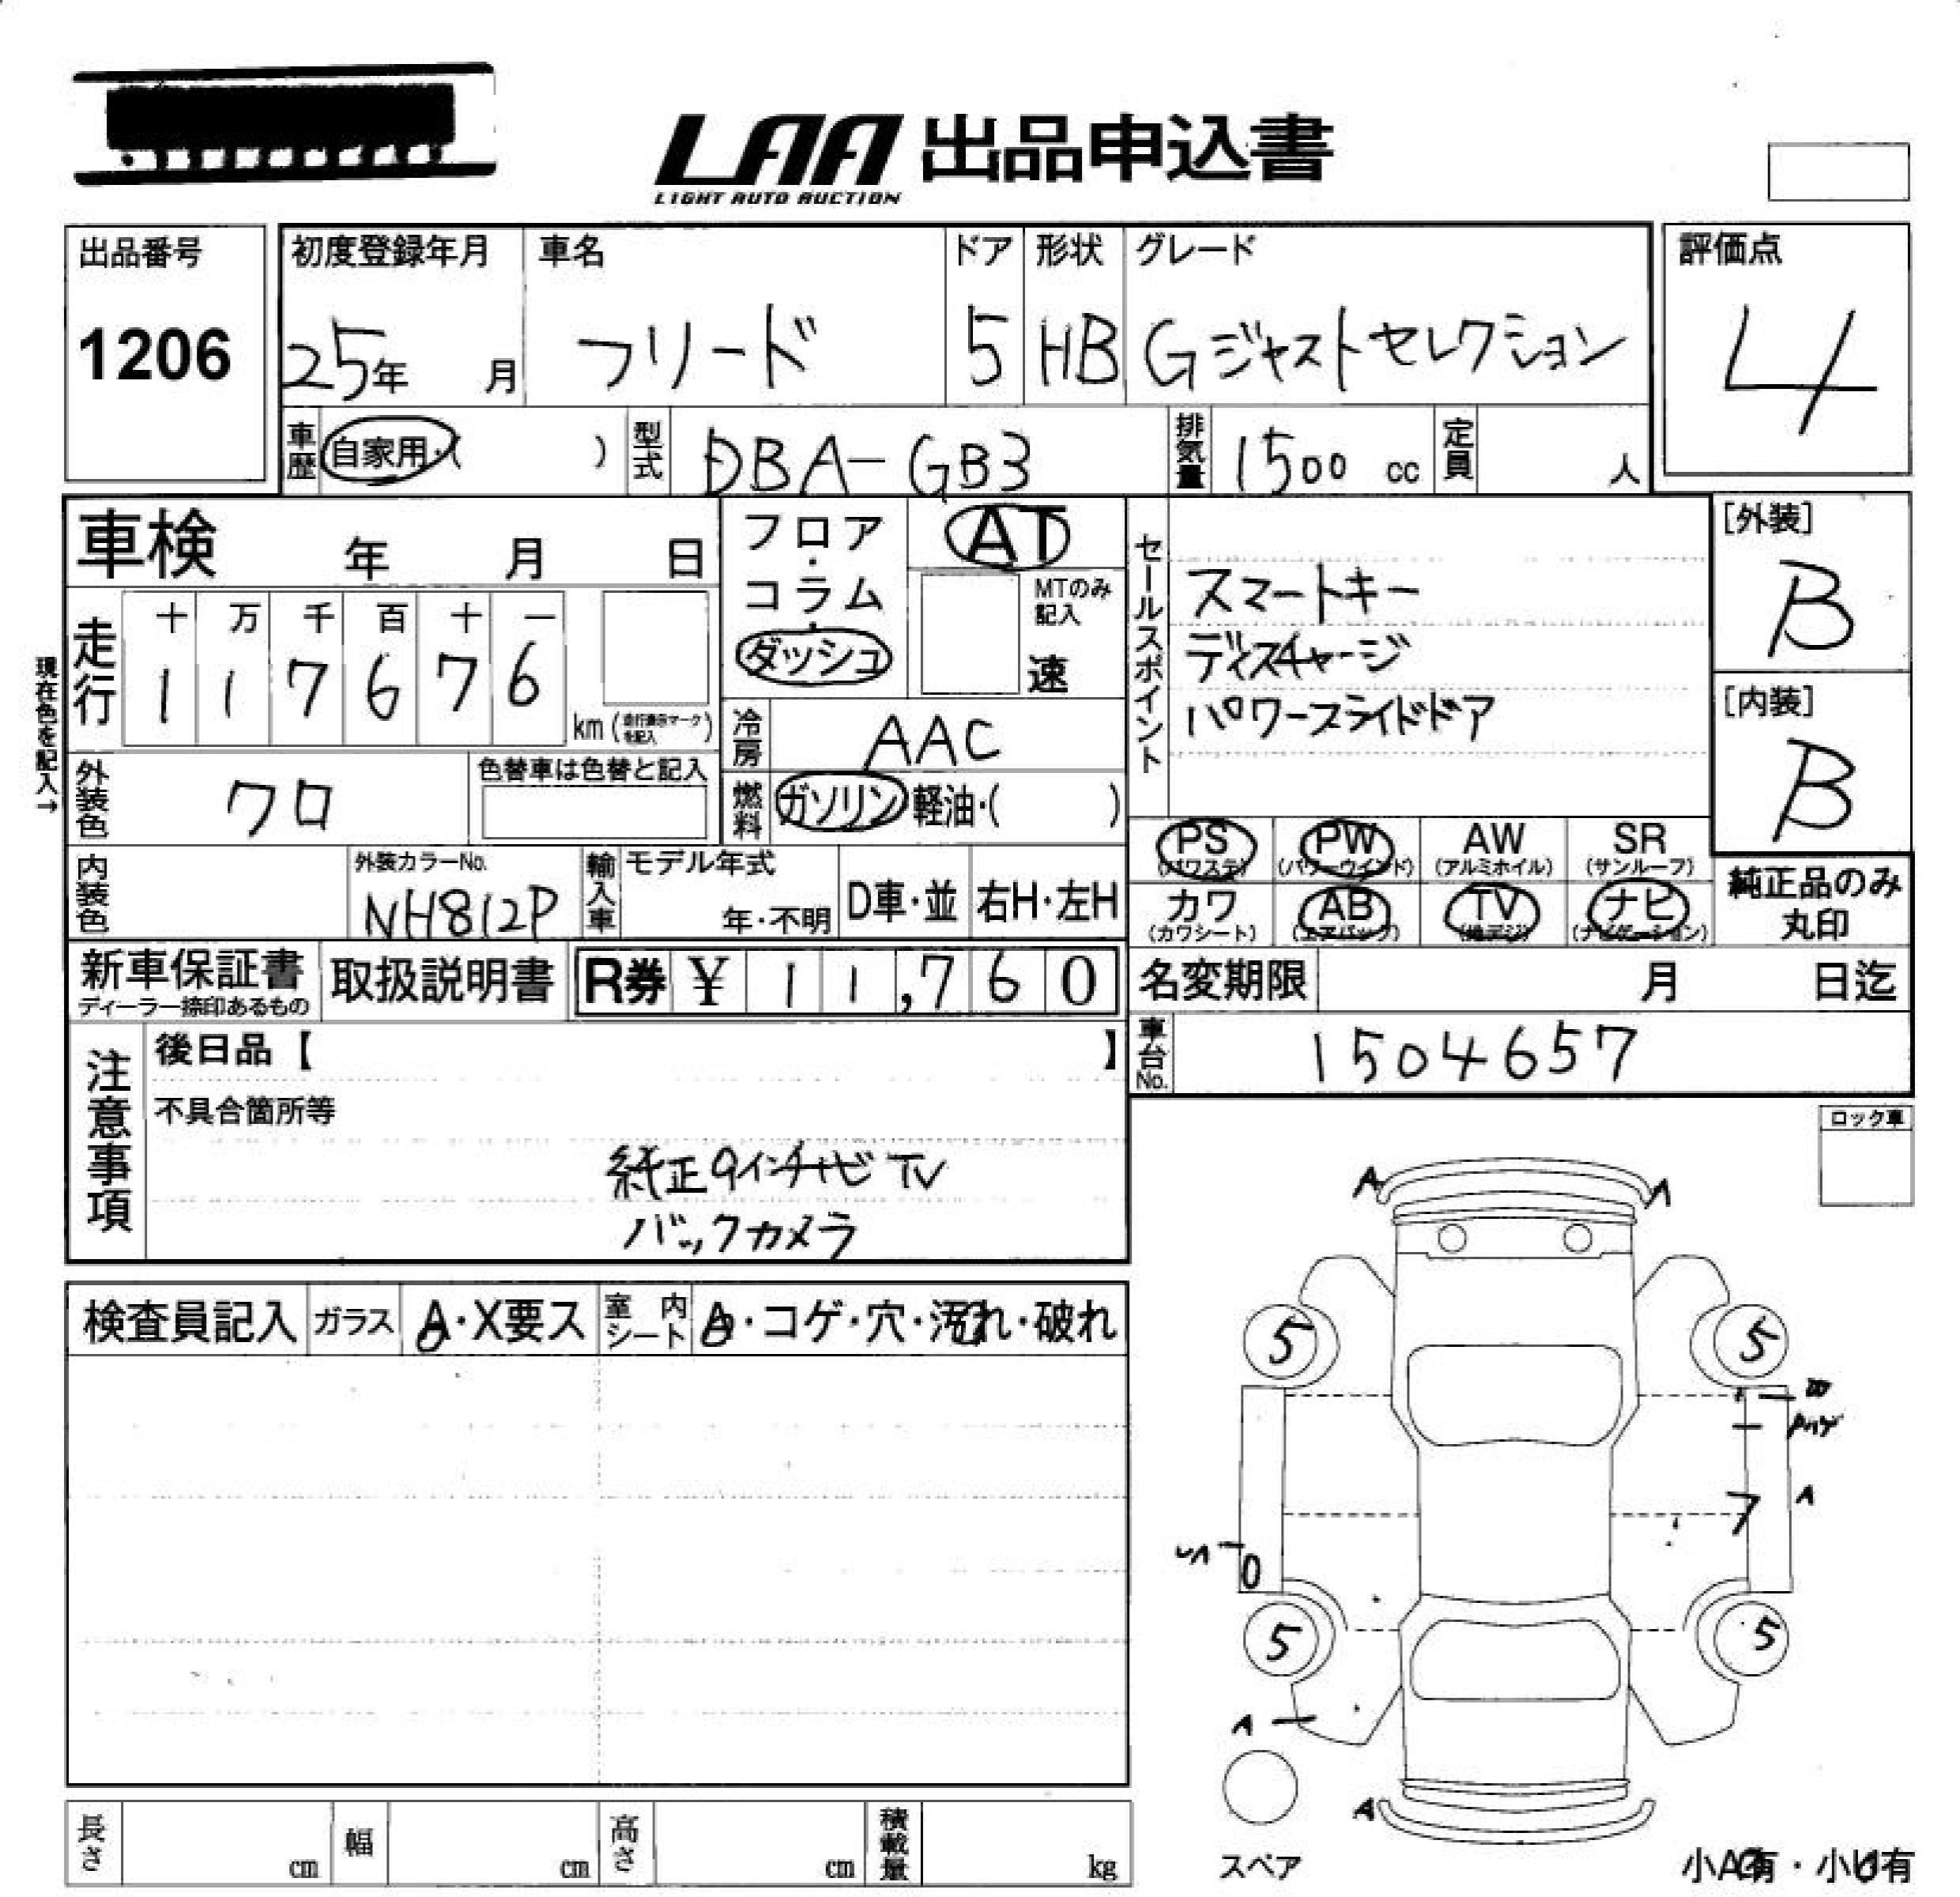 LAA 出品申込書
LIGHT AUTO AUCTION
出品番号
1206
初度登録年月 車名 ドア 形状 グレード
25年 月 フリード 5 HB Gジャストセレクション
評価点
4
車歴 自家用・( ) 型式 DBA-GB3 排気量 1500 cc 定員 人
車検 年 月 日
フロア・コラム・ダッシュ
AT
MTのみ記入
速
現在色を記入→
走行 十 万 千 百 十 一
1 1 7 6 7 6
km (走行表示マークを記入)
冷房 AAC
外装色 クロ
色替車は色替と記入
燃料 ガソリン・軽油・( )
セールスポイント
スマートキー
ディスチャージ
パワースライドドア
[外装]
B
[内装]
B
PS PW AW SR
(パワステ) (パワーウインド) (アルミホイル) (サンルーフ)
カワ AB TV ナビ
(カワシート) (エアバッグ) (地デジ) (ナビゲーション)
純正品のみ
丸印
内装色 外装カラーNo.
NH812P
輸入車 モデル年式
年・不明 D車・並 右H・左H
新車保証書 取扱説明書 R券 ¥ 11,760
ディーラー捺印あるもの
名変期限 月 日迄
車台No. 1504657
注意事項
後日品【 】
不具合箇所等
純正9インチナビTV
バックカメラ
ロック車
検査員記入 ガラス A・X要ス 室内シート ・コゲ・穴・汚れ・破れ
A A
5 5
A
7
0
5 5
A
A
スペア
小A有・小U有
長さ cm 幅 cm 高さ cm 積載量 kg